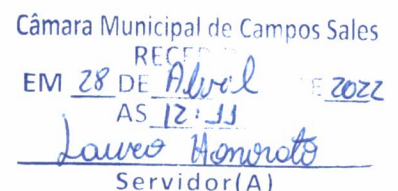 Câmara Municipal de Campos Sales
EM 28 DE Abril 2022
AS 12:11
Honorato
Servidor(A)